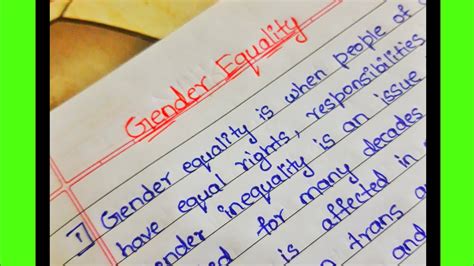 Gender Equality
1] Gender equality is when people of
have equal rights, responsibilities
inequality is an issue
for many decades
is affected in
trans